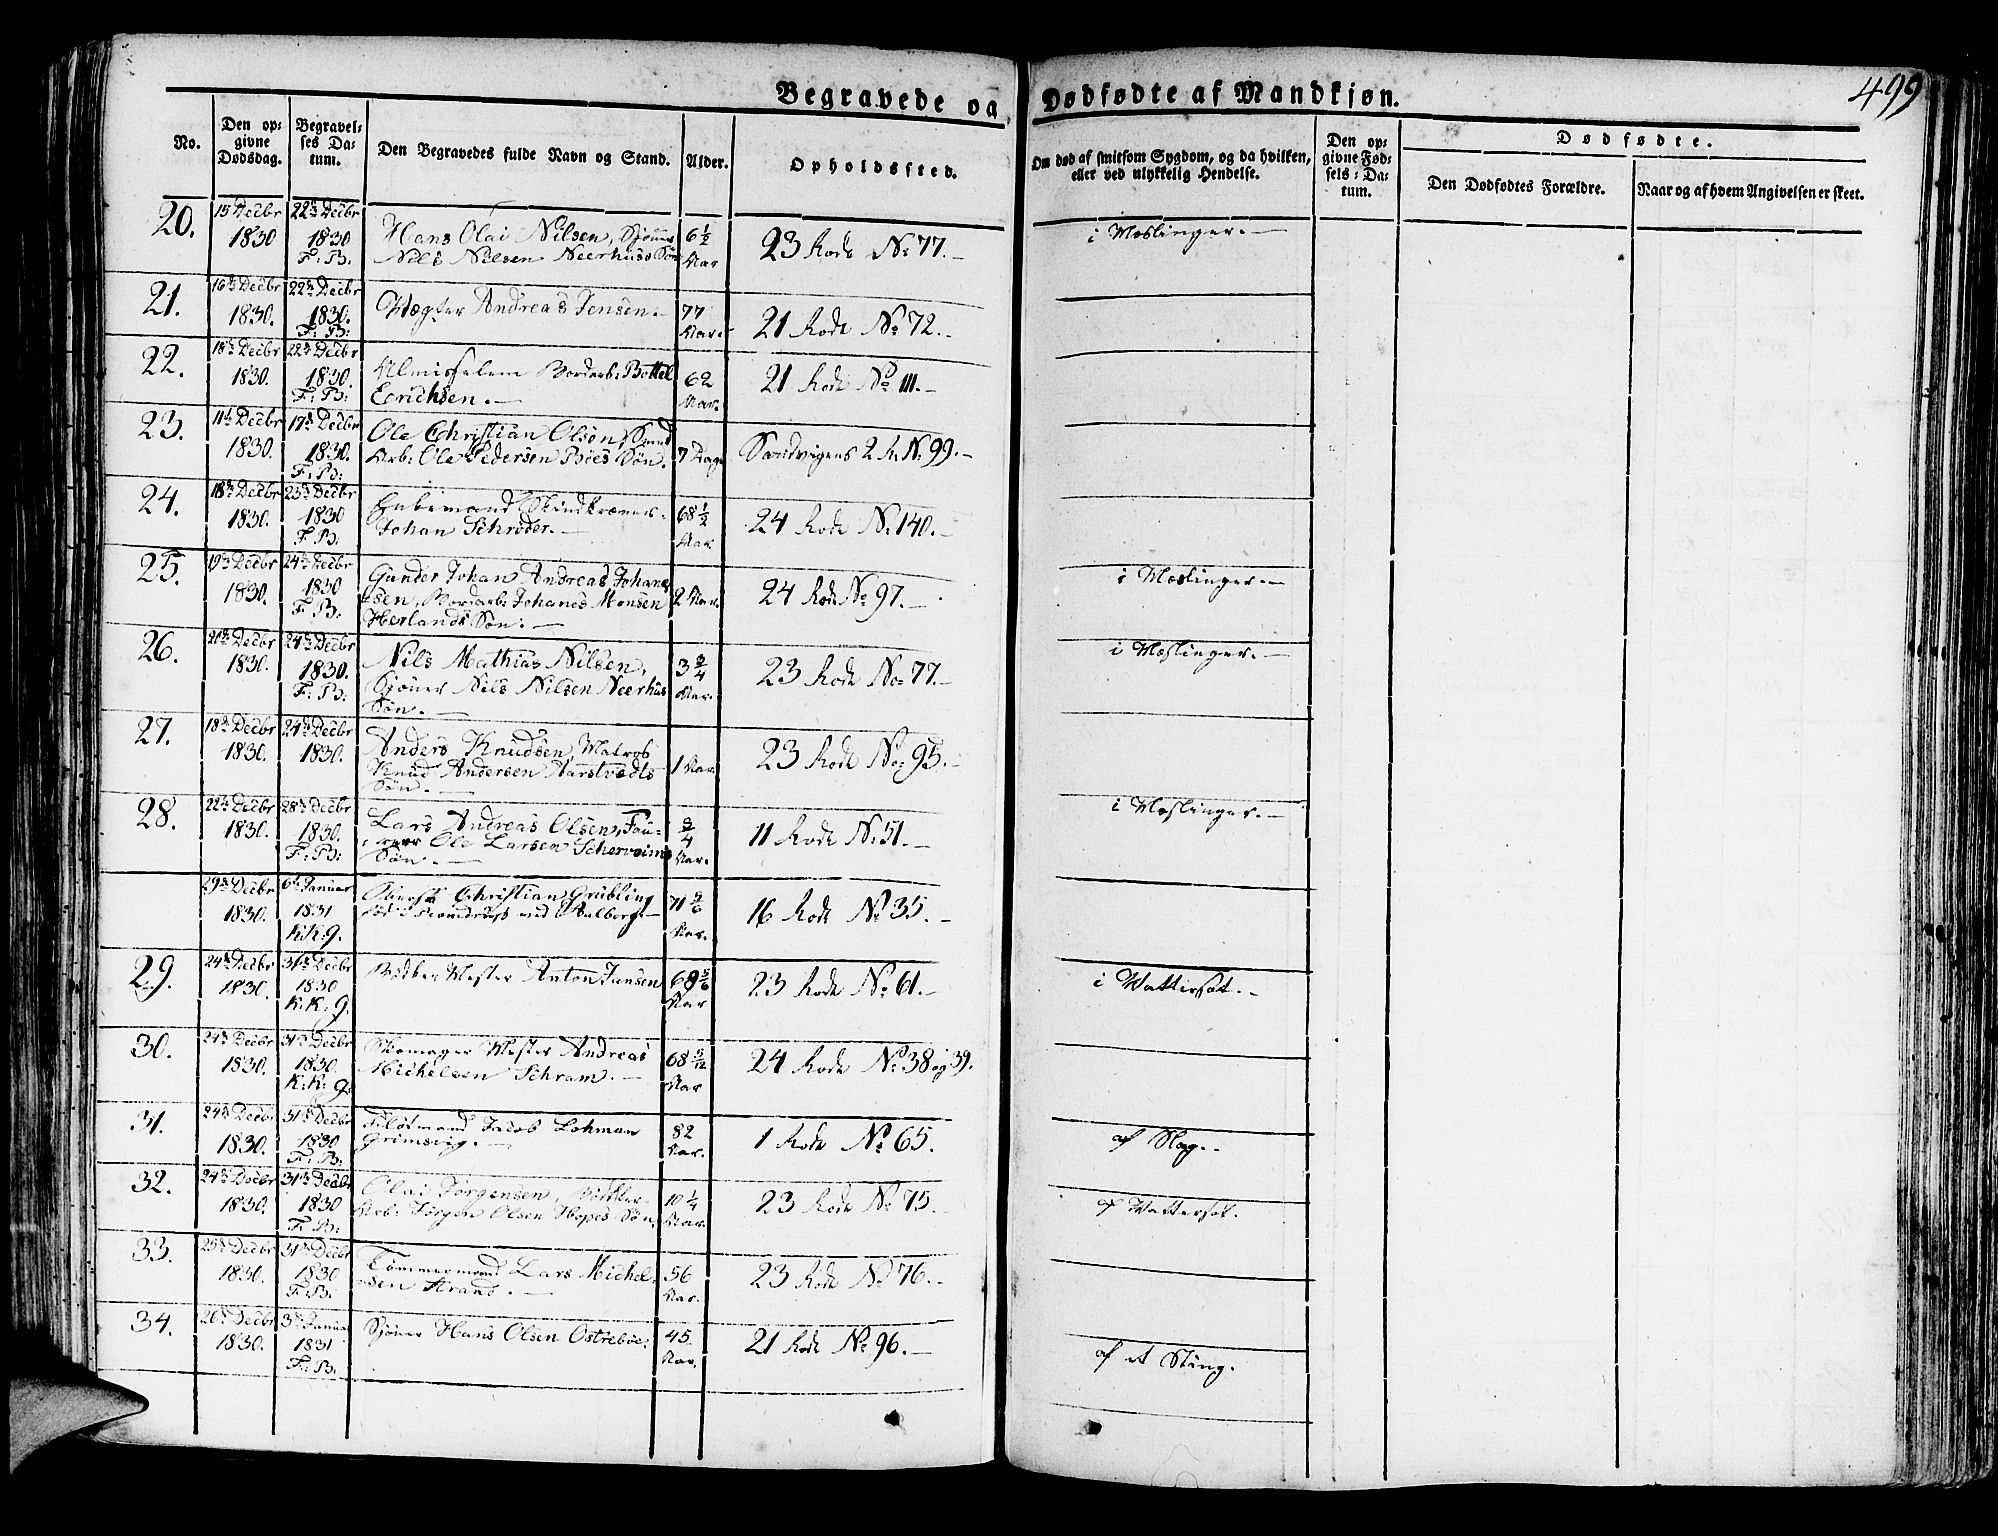 499
Begravede og Dødfødte af Mandkjøn.
No.
Den op-
givne
Dødsdag.
Begravel-
ses Da-
tum.
Den Begravedes fulde Navn og Stand.
Alder.
Opholdssted.
Om død af smitsom Sygdom, og da hvilken,
eller ved ulykkelig Hendelse.
Den op-
givne Fød-
sels-Da-
tum.
Dødfødte.
Den Dødfødtes Forældre.
Naar og af hvem Angivelsen er skeet.
20. 15 Decbr 1830 22 Decbr 1830 F: B: Hans Olai Nilsen, Sjöuer
Nils Nilsen Neerhuss Søn 6 1/2 Aar 23 Rode No 77. i Mæslinger.
21. 16 Decbr 1830. 22 Decbr 1830. F: B: Vægter Andreas Jensen. 77 Aar. 21 Rode No 72.
22. 18 Decbr 1830. 22 Decbr 1830. F: B: Almisselem Bordarb: Bottel
Erichsen. 62 Aar. 21 Rode No 111.
23. 11 Decbr 1830. 17 Decbr 1830. F: B: Ole Christian Olsøn,
Arb: Ole Pedersen Böes Søn. 7 Dage Sandvigens 2 R. No 99.
24. 18 Decbr 1830. 23 Decbr 1830 F: B:
Johan Schrøder. 68 1/2 Aar 24 Rode No 140.
25. 19 Decbr 1830. 24 Decbr 1830 F: B: Gunder Johan Andreas Johane
sen, Bordarb: Johanes Monsen
Herlands Søn. 2 Aar. 24 Rode No 97. i Mæslinger.
26. 21 Decbr 1830. 24 Decbr 1830. F: B: Nils Mathias Nilsen,
Sjöuer Nils Nilsen Neerhus
Søn. 3 3/4 Aar. 23 Rode No 77. i Mæslinger.
27. 18 Decbr 1830. 24 Decbr 1830. Anders Knudsen, Matros
Knud Andersen Aarstvedts
Søn. 1 Aar 23 Rode No 95.
28. 22 Decbr 1830. 28 Decbr 1830. F: B: Lars Andreas Olsen,
Ole Larsen
Søn. 3/4 Aar. 11 Rode No 51. i Mæslinger.
29 Decbr 1830. 6 Januar 1831 K:K:g. Oberst Christian Grübling
ved Aalborg. 71 5/6 Aar. 16 Rode No 35.
29. 24 Decbr 1830. 31 Decbr 1830 K:K:g. Bødker Mester Anton Jansen 69 5/6 Aar 23 Rode No 61. i Vattersot.
30. 24 Decbr 1830. 31 Decbr 1830. K:K:g. Skomager Mester Andreas
Michelsen Schram. 68 5/12 Aar 24 Rode No 38 og 39.
31. 24 Decbr 1830. 31 Decbr 1830 F: B: Jacob Lohman
Grimsvig. 82 Aar. 1 Rode No 65. af Slag.
32. 24 Decbr 1830. 31 Decbr 1830 F: B: Olai Jørgensen,
Arb: Jörgen Olsen Hopes Søn. 10 1/4 Aar. 23 Rode No 75. af Vattersot.
33. 25 Decbr 1830. 31 Decbr 1830 F: B: Tömmermand Lars Michel
sen Strand. 56 Aar. 23 Rode No 76.
34. 26 Decbr 1830. 3 Januar 1831 F: B: Sjöuer Hans Olsen Ostreböe. 45 Aar. 21 Rode No 96. af et Sting.